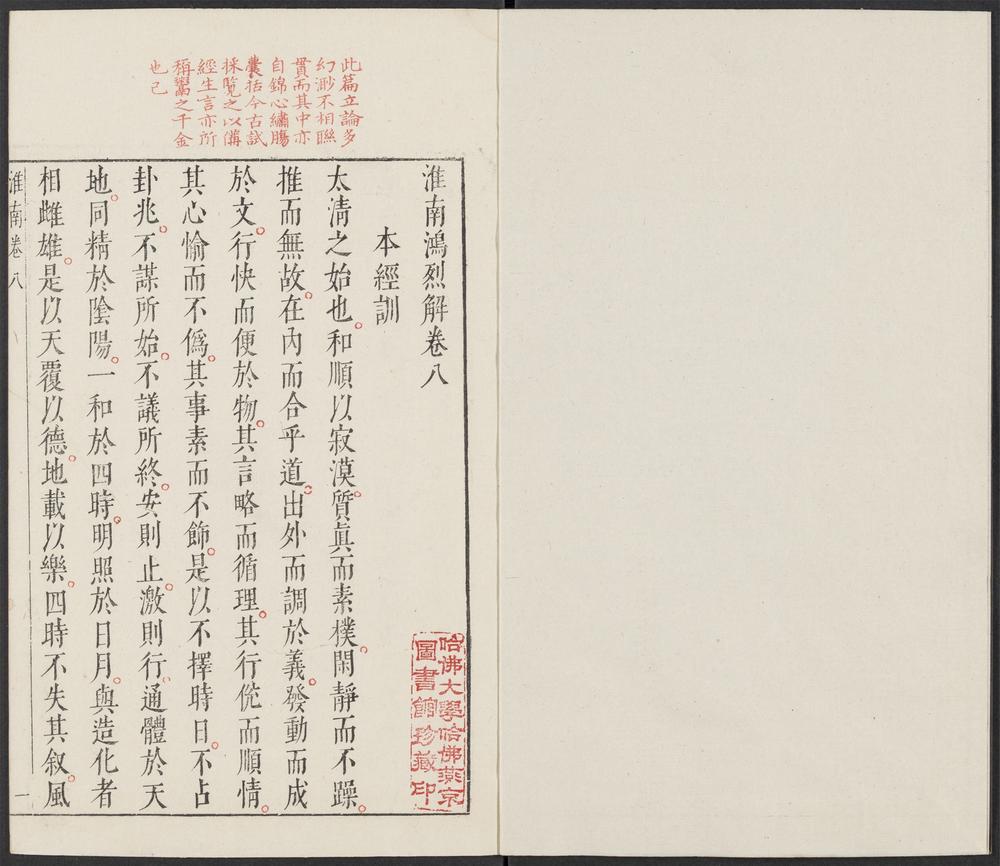 此篇立論多
幻渺不相聮
貫而其中亦
自錦心繡膓
囊括今古試
採覧之以備
經生言亦所
稱鬻之千金
也已
淮南鴻烈解卷八
本經訓
太淸之始也。和順以寂漠。質眞而素樸。閑靜而不躁。
推而無故。在內而合乎道。出外而調於義。發動而成
於文。行快而便於物。其言略而循理。其行侻而順情。
其心愉而不僞。其事素而不飾。是以不擇時日。不占
卦兆。不謀所始。不議所終。安則止。激則行。通體於天
地。同精於陰陽。一和於四時。明照於日月。與造化者
相雌雄。是以天覆以德。地載以樂。四時不失其叙。風
淮南卷八
一
哈佛大學哈佛燕京
圖書館珍藏印